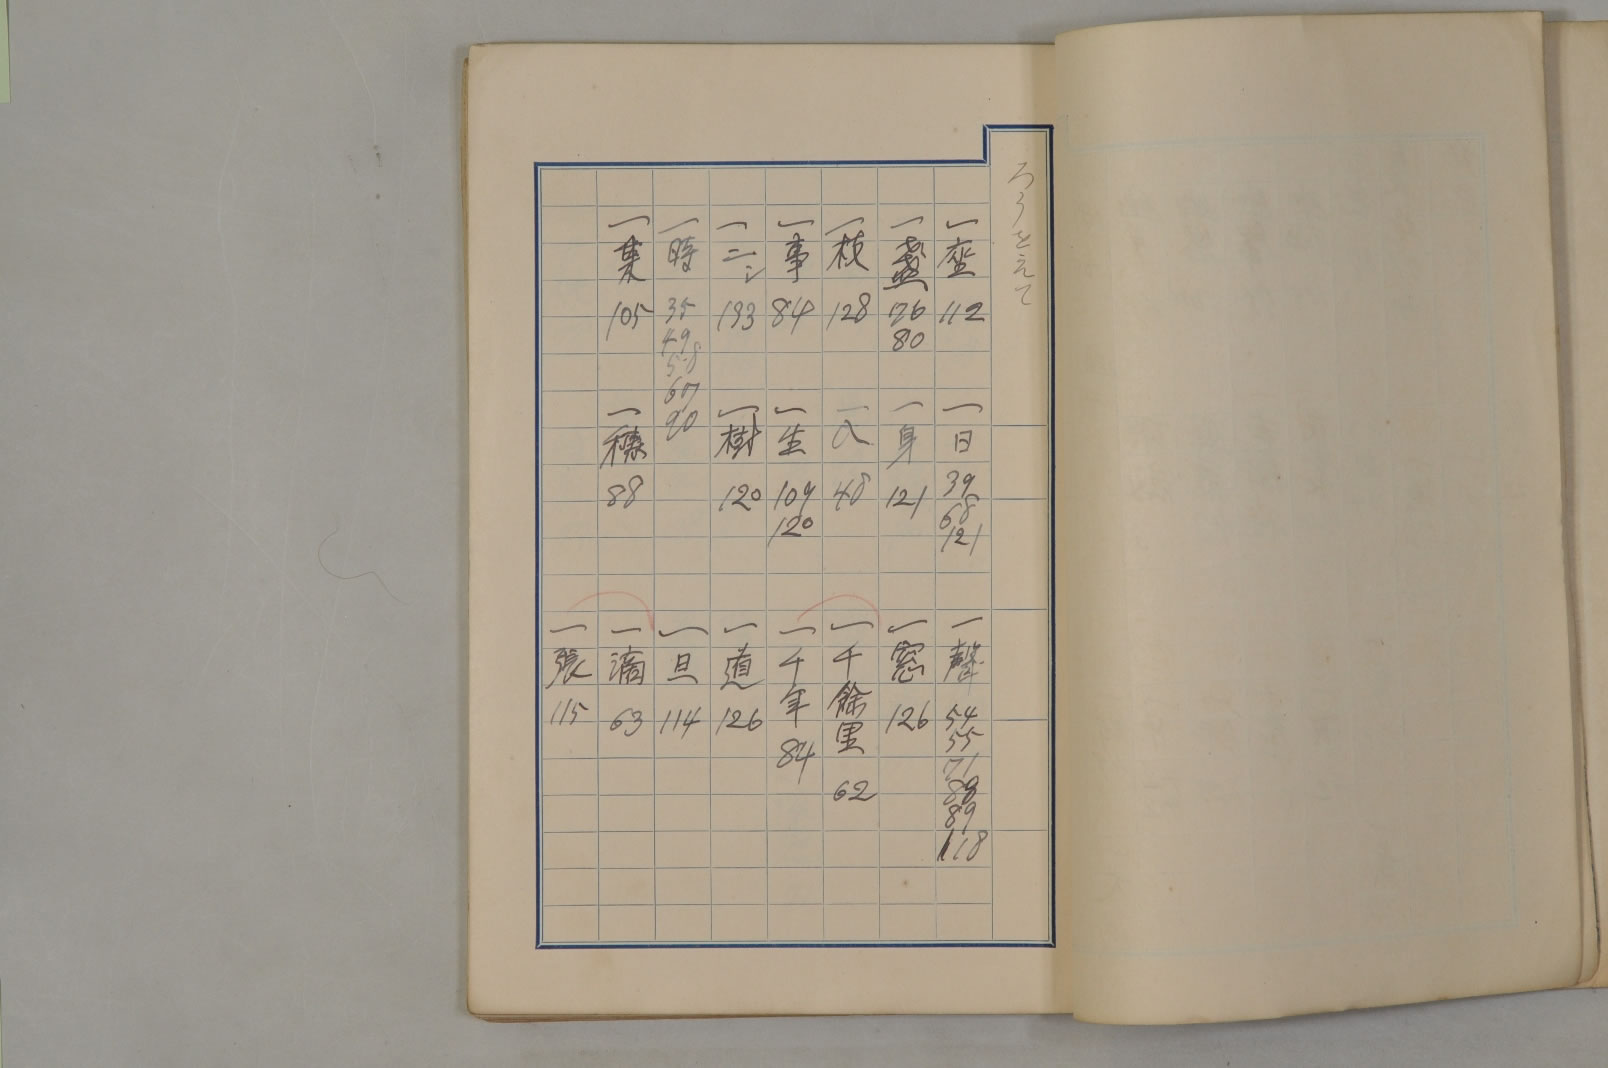 一座 112
一盞 76 80
一枝 128
一事 84
一二 193
一時 35 49 58 67 90
一集 105
一日 39 68 121
一身 121
一八 48
一生 109 120
一樹 120
一穗 88
一聲 54 55 71 88 89 118
一窓 126
一千餘里 62
一千年 84
一道 126
一旦 114
一滴 63
一張 115